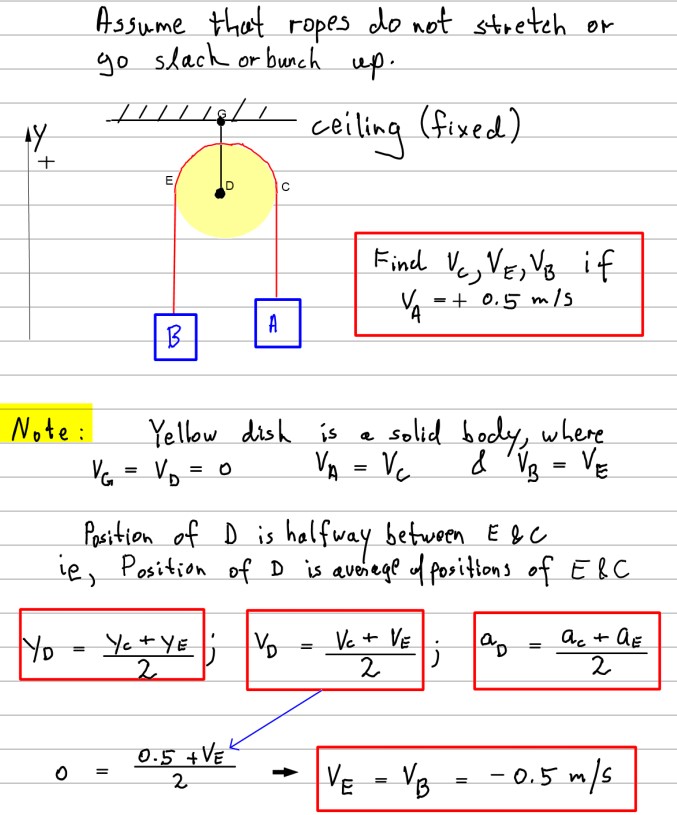 Assume that ropes do not stretch or
go slack or bunch up.
G
ceiling (fixed)
Y
+
E
D
C
Find V_C, V_E, V_B if
V_A = + 0.5 m/s
B
A
Note: Yellow disk is a solid body, where
V_G = V_D = 0 V_A = V_C & V_B = V_E
Position of D is halfway between E & C
ie, Position of D is average of positions of E & C
Y_D = (Y_C + Y_E)/2 ; V_D = (V_C + V_E)/2 ; a_D = (a_C + a_E)/2
0 = (0.5 + V_E)/2 → V_E = V_B = - 0.5 m/s